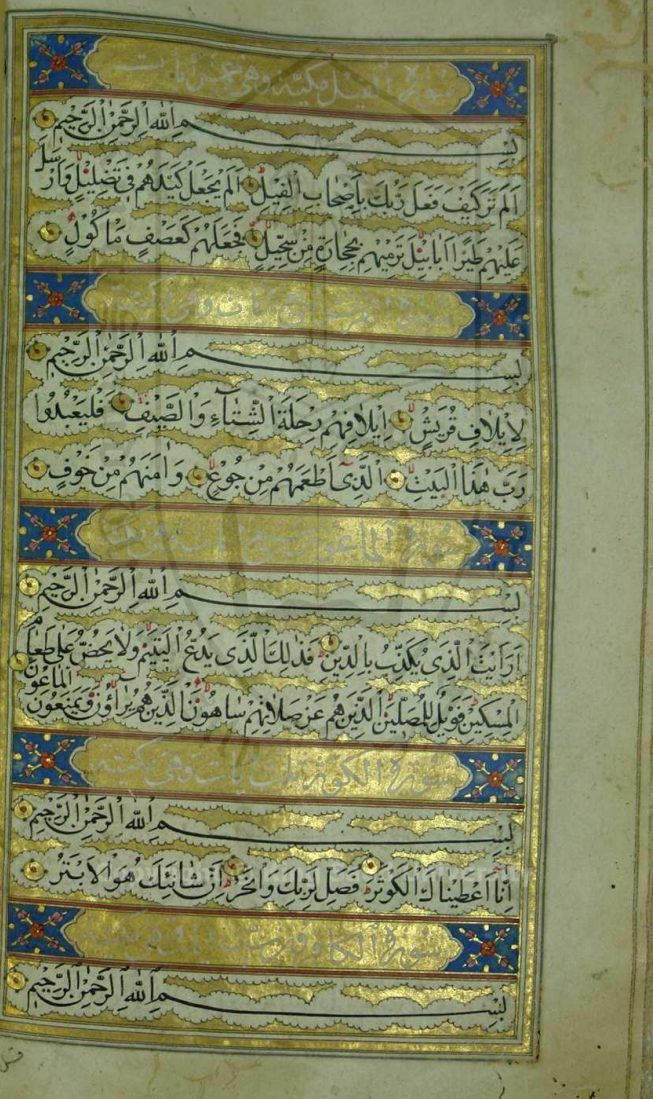 سورة الفيل مكية وهي خمس آيات
بِسْمِ اللَّهِ الرَّحْمٰنِ الرَّحِيمِ
اَلَمْ تَرَ كَيْفَ فَعَلَ رَبُّكَ بِاَصْحَابِ الْفِيلِ اَلَمْ يَجْعَلْ كَيْدَهُمْ فِى تَضْلِيلٍ وَاَرْسَلَ
عَلَيْهِمْ طَيْرًا اَبَابِيلَ تَرْمِيهِمْ بِحِجَارَةٍ مِنْ سِجِّيلٍ فَجَعَلَهُمْ كَعَصْفٍ مَاْكُولٍ
سورة وهي مكية
بِسْمِ اللَّهِ الرَّحْمٰنِ الرَّحِيمِ
لِاِيلَافِ قُرَيْشٍ اِيلَافِهِمْ رِحْلَةَ الشِّتَٓاءِ وَالصَّيْفِ فَلْيَعْبُدُوا
رَبَّ هٰذَا الْبَيْتِ الَّذِٓى اَطْعَمَهُمْ مِنْ جُوعٍ وَاٰمَنَهُمْ مِنْ خَوْفٍ
سورة الماعون
بِسْمِ اللَّهِ الرَّحْمٰنِ الرَّحِيمِ
اَرَاَيْتَ الَّذِى يُكَذِّبُ بِالدِّينِ فَذٰلِكَ الَّذِى يَدُعُّ الْيَتِيمَ وَلَا يَحُضُّ عَلٰى طَعَامِ
الْمِسْكِينِ فَوَيْلٌ لِلْمُصَلِّينَ الَّذِينَ هُمْ عَنْ صَلَاتِهِمْ سَاهُونَ الَّذِينَ هُمْ يُرَٓاؤُنَ وَيَمْنَعُونَ الْمَاعُونَ
سورة الكوثر ثلث آيات وهي مكية
بِسْمِ اللَّهِ الرَّحْمٰنِ الرَّحِيمِ
اِنَّا اَعْطَيْنَاكَ الْكَوْثَرَ فَصَلِّ لِرَبِّكَ وَانْحَرْ اِنَّ شَانِئَكَ هُوَ الْاَبْتَرُ
سورة الكافرون
بِسْمِ اللَّهِ الرَّحْمٰنِ الرَّحِيمِ
قل